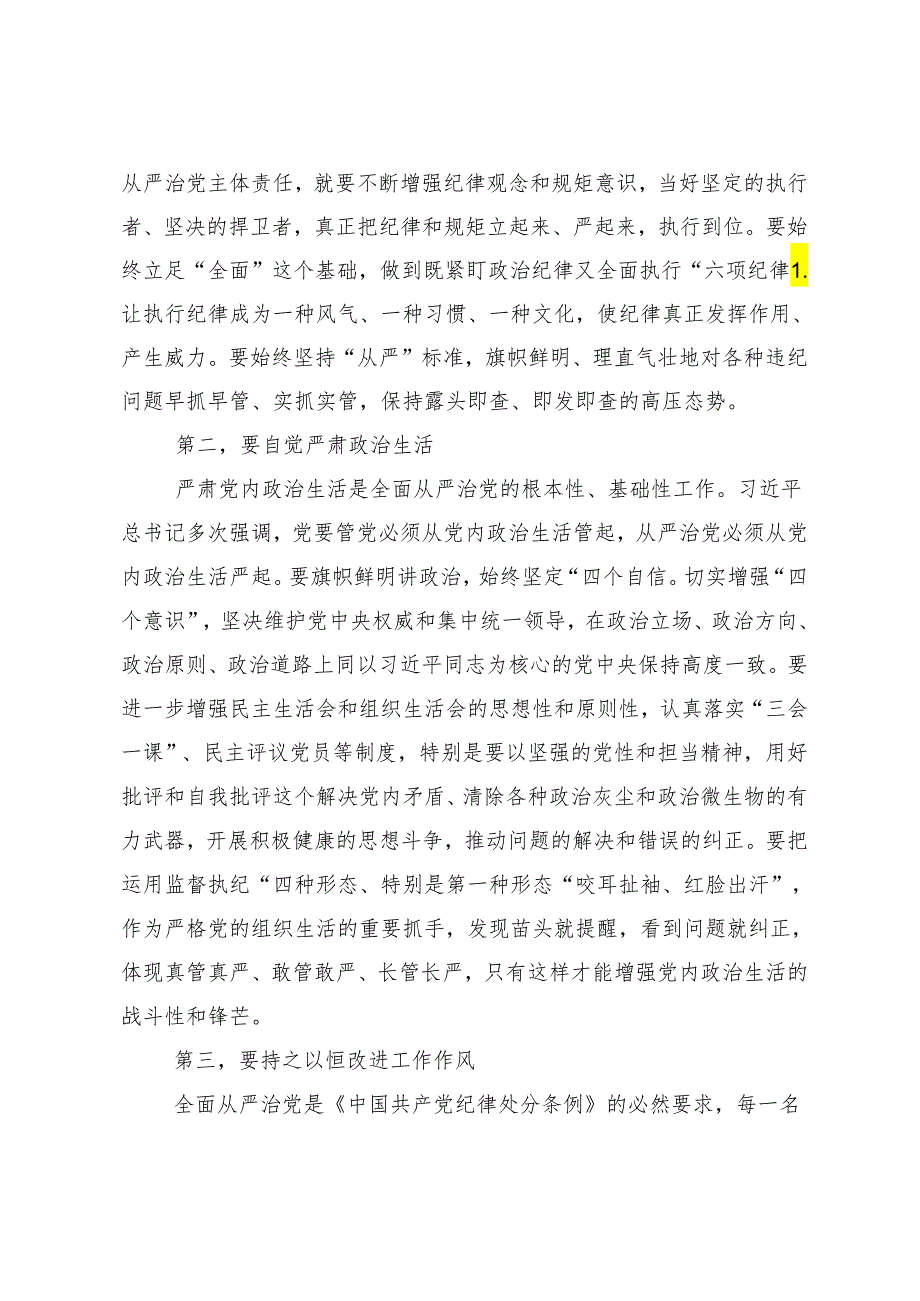 从严治党主体责任，就要不断增强纪律观念和规矩意识，当好坚定的执行
者、坚决的捍卫者，真正把纪律和规矩立起来、严起来，执行到位。要始
终立足“全面”这个基础，做到既紧盯政治纪律又全面执行“六项纪律1.
让执行纪律成为一种风气、一种习惯、一种文化，使纪律真正发挥作用、
产生威力。要始终坚持“从严”标准，旗帜鲜明、理直气壮地对各种违纪
问题早抓早管、实抓实管，保持露头即查、即发即查的高压态势。
第二，要自觉严肃政治生活
严肃党内政治生活是全面从严治党的根本性、基础性工作。习近平
总书记多次强调，党要管党必须从党内政治生活管起，从严治党必须从党
内政治生活严起。要旗帜鲜明讲政治，始终坚定“四个自信。切实增强“四
个意识”，坚决维护党中央权威和集中统一领导，在政治立场、政治方向、
政治原则、政治道路上同以习近平同志为核心的党中央保持高度一致。要
进一步增强民主生活会和组织生活会的思想性和原则性，认真落实“三会
一课”、民主评议党员等制度，特别是要以坚强的党性和担当精神，用好
批评和自我批评这个解决党内矛盾、清除各种政治灰尘和政治微生物的有
力武器，开展积极健康的思想斗争，推动问题的解决和错误的纠正。要把
运用监督执纪“四种形态、特别是第一种形态“咬耳扯袖、红脸出汗”，
作为严格党的组织生活的重要抓手，发现苗头就提醒，看到问题就纠正，
体现真管真严、敢管敢严、长管长严，只有这样才能增强党内政治生活的
战斗性和锋芒。
第三，要持之以恒改进工作作风
全面从严治党是《中国共产党纪律处分条例》的必然要求，每一名